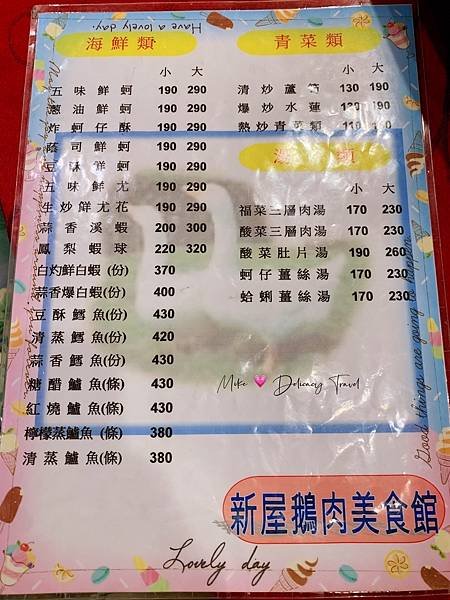 Have a lovely day.
海鮮類
小 大
五味鮮蚵 190 290
蔥油鮮蚵 190 290
炸蚵仔酥 190 290
蔭司鮮蚵 190 290
豆酥鮮蚵 190 290
五味鮮尤 190 290
生炒鮮尤花 190 290
蒜香溪蝦 200 300
鳳梨蝦球 220 320
白灼鮮白蝦(份) 370
蒜香爆白蝦(份) 400
豆酥鱈魚(份) 430
清蒸鱈魚(份) 420
蒜香鱈魚(份) 430
糖醋鱸魚(條) 430
紅燒鱸魚(條) 430
檸檬蒸鱸魚(條) 380
清蒸鱸魚(條) 380
青菜類
小 大
清炒蘆筍 130 190
爆炒水蓮 120 180
熱炒青菜類 110
湯 類
小 大
福菜三層肉湯 170 230
酸菜三層肉湯 170 230
酸菜肚片湯 190 260
蚵仔薑絲湯 170 230
蛤蜊薑絲湯 170 230
Mike Delicacy Travel
Good things are going to happen
新屋鵝肉美食館
Lovely day